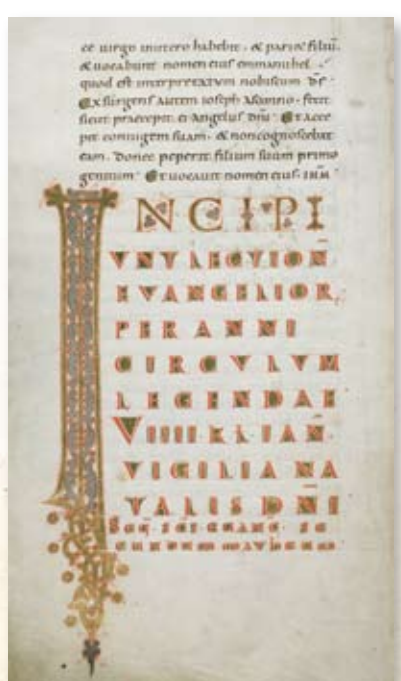 ce virgo inutero habebit. & pariet filiū.
& uocabunt nomen eius emmanuhel.
quod est interpretatum nobiscum d̄s.
Exsurgens autem ioseph asomno. fecit
sicut praecepit ei angelus dn̄i. Et acce
pit coniugem suam. & noncognoscebat
eam. donec peperit filium suum primo
genitum. Et uocauit nomen eius. ihm̄
INCIPI
UNT LECTION̄
EVANGELIOR
PER ANNI
CIRCVLVM
LEGENDAE
VIIII KL IAN̄.
VIGILIA NA
TALIS DN̄I
SEQ̄ SCI EVANḠ. SE
CUNDUM MATHEUM